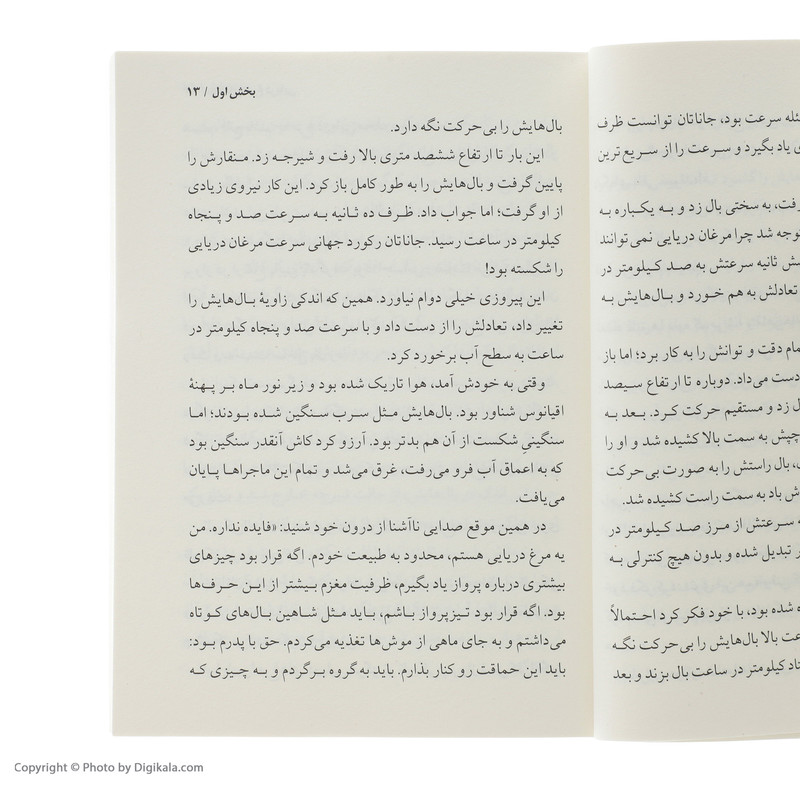 ئله سرعت بود، جاناتان توانست ظرف
ی یاد بگیرد و سرعت را از سریع ترین
رفت، به سختی بال زد و به یکباره به
توجه شد چرا مرغان دریایی نمی توانند
ش ثانیه سرعتش به صد کیلومتر در
تعادلش به هم خورد و بال‌هایش به
مام دقت و توانش را به کار برد؛ اما باز
دست می‌داد. دوباره تا ارتفاع سیصد
ل زد و مستقیم حرکت کرد. بعد به
چپش به سمت بالا کشیده شد و او را
، بال راستش را به صورت بی‌حرکت
ش باد به سمت راست کشیده شد.
ه سرعتش از مرز صد کیلومتر در
ر تبدیل شده و بدون هیچ کنترلی به
ه شده بود، با خود فکر کرد احتمالاً
عت بالا بال‌هایش را بی‌حرکت نگه
تاد کیلومتر در ساعت بال بزند و بعد
بخش اول / ۱۳
بال‌هایش را بی‌حرکت نگه دارد.
این بار تا ارتفاع ششصد متری بالا رفت و شیرجه زد. منقارش را
پایین گرفت و بال‌هایش را به طور کامل باز کرد. این کار نیروی زیادی
از او گرفت؛ اما جواب داد. ظرف ده ثانیه به سرعت صد و پنجاه
کیلومتر در ساعت رسید. جاناتان رکورد جهانی سرعت مرغان دریایی
را شکسته بود!
این پیروزی خیلی دوام نیاورد. همین که اندکی زاویهٔ بال‌هایش را
تغییر داد، تعادلش را از دست داد و با سرعت صد و پنجاه کیلومتر در
ساعت به سطح آب برخورد کرد.
وقتی به خودش آمد، هوا تاریک شده بود و زیر نور ماه بر پهنهٔ
اقیانوس شناور بود. بال‌هایش مثل سرب سنگین شده بودند؛ اما
سنگینیِ شکست از آن هم بدتر بود. آرزو کرد کاش آنقدر سنگین بود
که به اعماق آب فرو می‌رفت، غرق می‌شد و تمام این ماجراها پایان
می‌یافت.
در همین موقع صدایی ناآشنا از درون خود شنید: «فایده نداره. من
یه مرغ دریایی هستم، محدود به طبیعت خودم. اگه قرار بود چیزهای
بیشتری درباره پرواز یاد بگیرم، ظرفیت مغزم بیشتر از این حرف‌ها
بود. اگه قرار بود تیزپرواز باشم، باید مثل شاهین بال‌های کوتاه
می‌داشتم و به جای ماهی از موش‌ها تغذیه می‌کردم. حق با پدرم بود:
باید این حماقت رو کنار بذارم. باید به گروه برگردم و به چیزی که
Copyright © Photo by Digikala.com